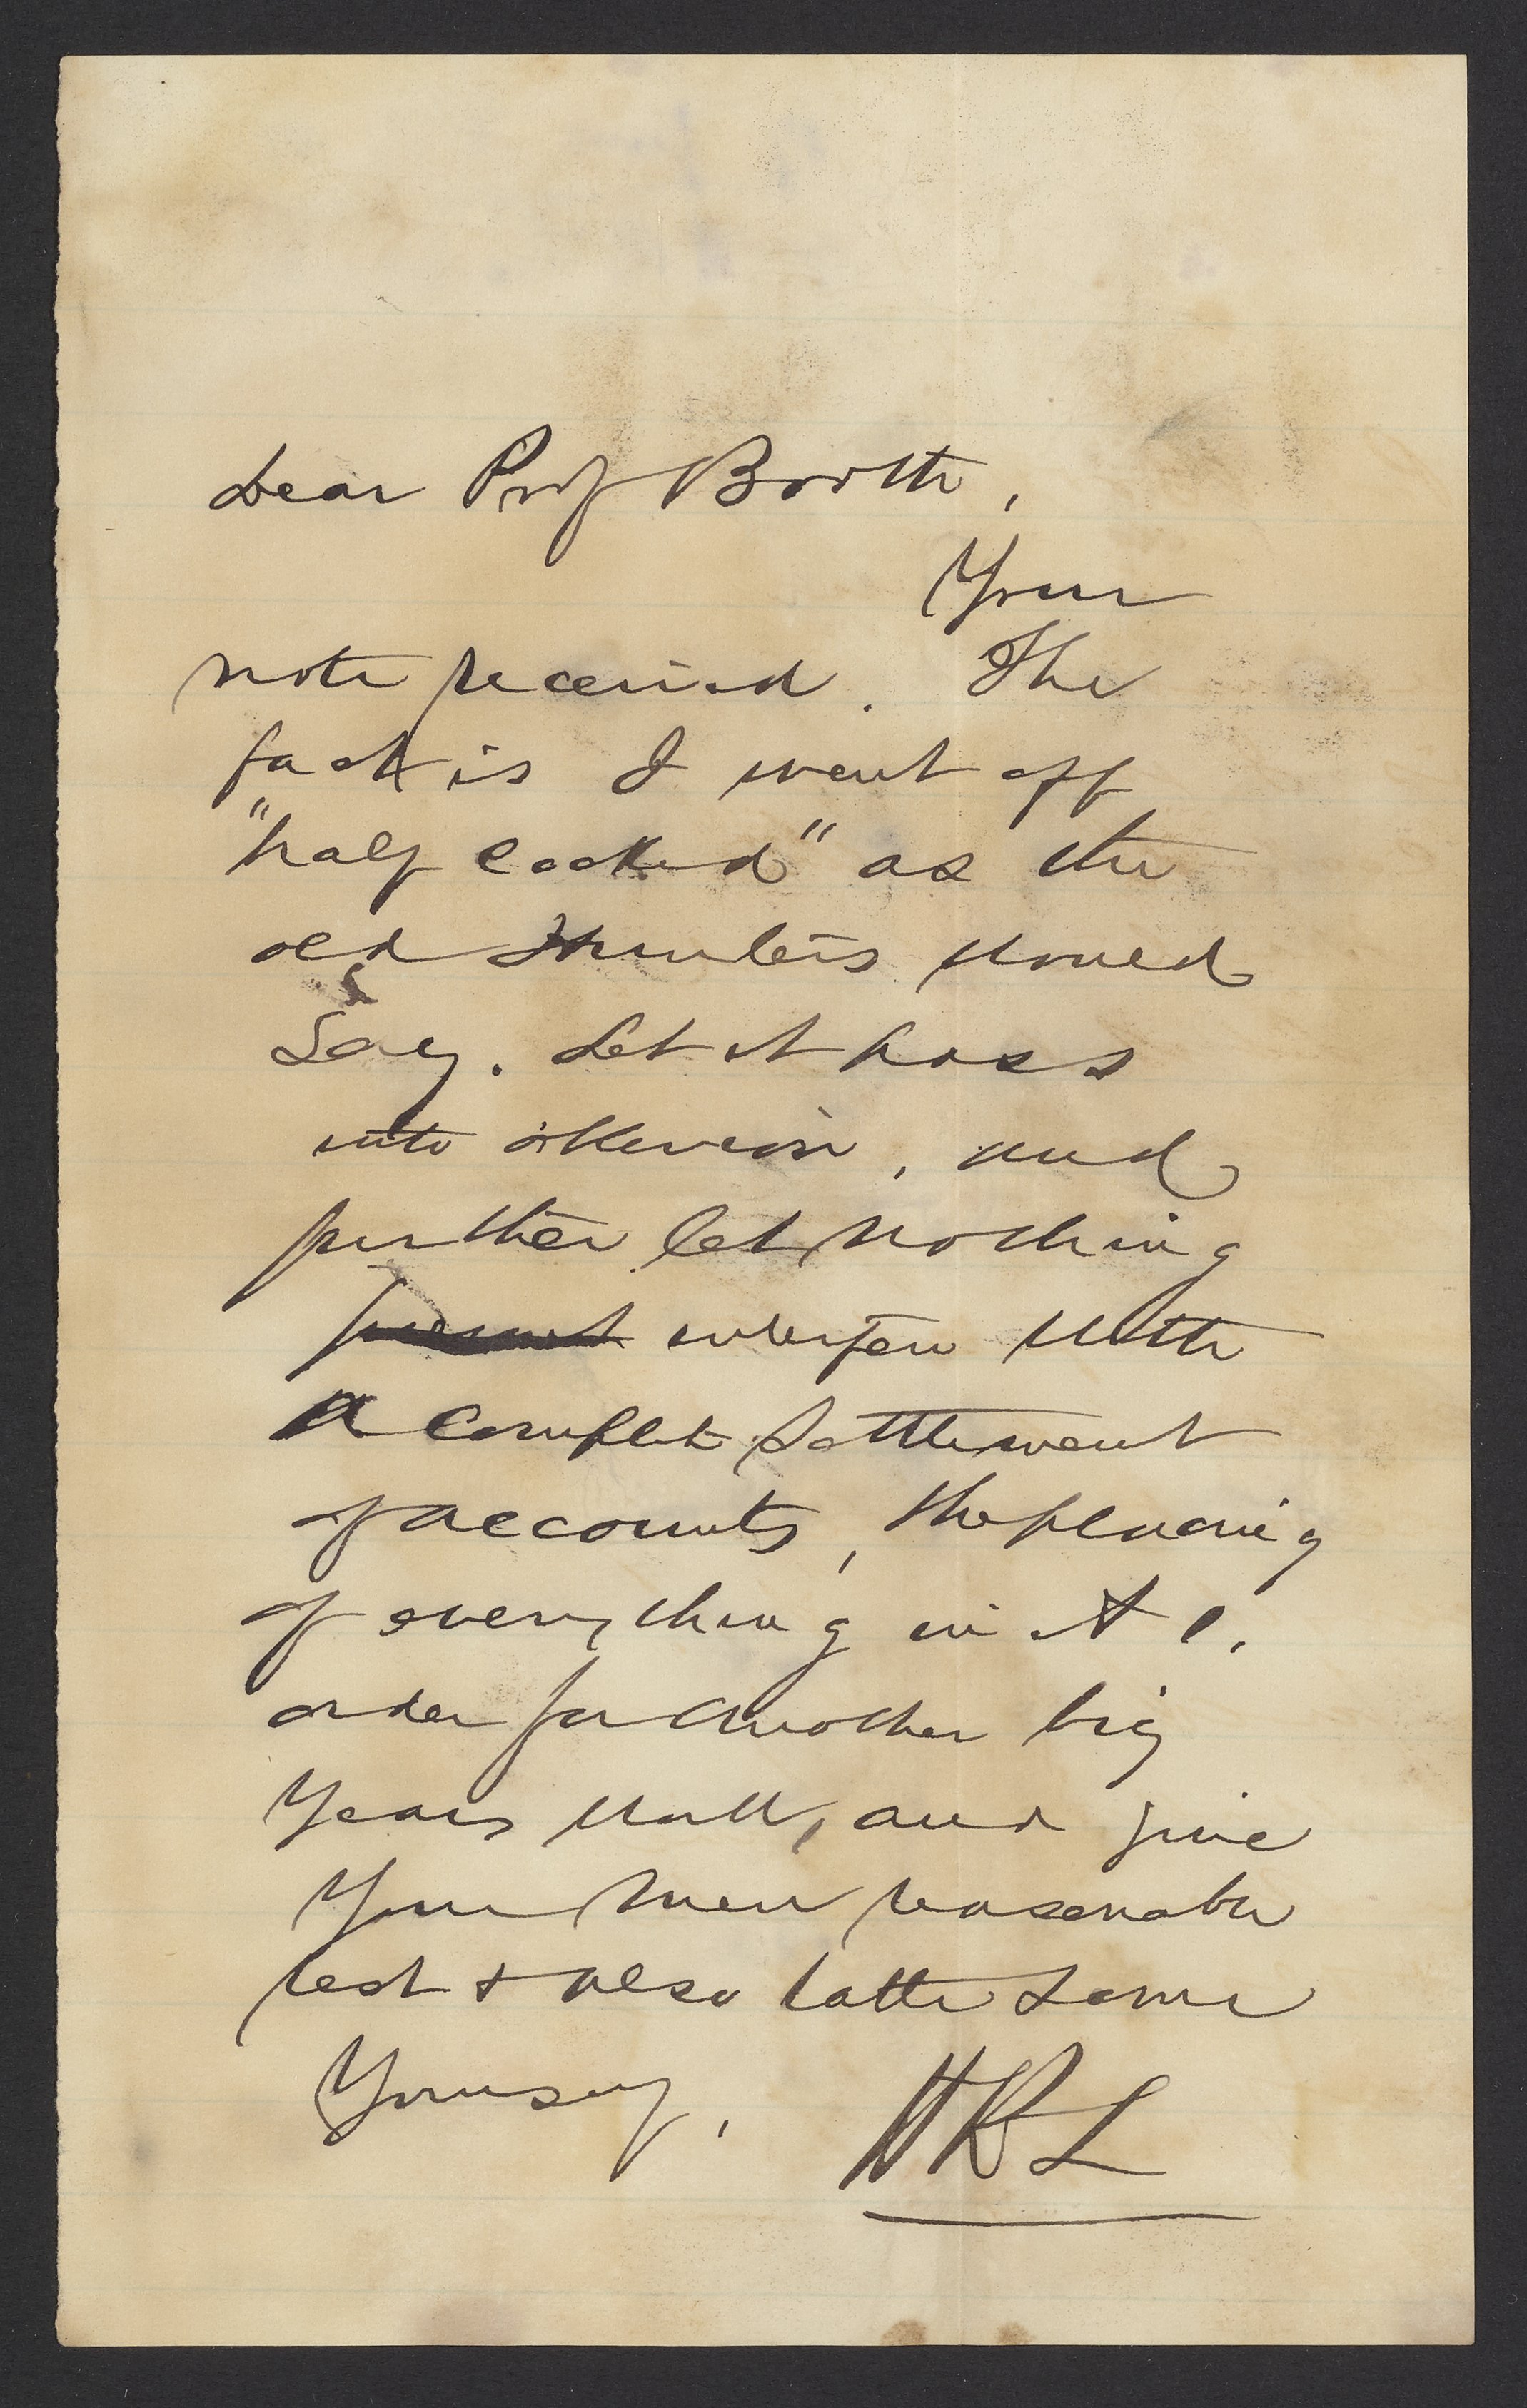 Dear Prof Booth,
Your
note received. The
fact is I went off
"half cocked" as the
old hunters would
say. Let it pass
into oblivion, and
further let nothing
prevent interfere with
a complete settlement
of accounts, the placing
of everything in A 1.
order for another big
years work, and give
your men reasonable
rest & also take some
Yourself,
HRL